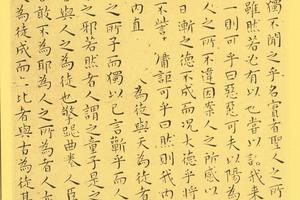 獨不聞之乎名實者聖人之所
雖然若必有以也嘗以語我来
一則可乎曰惡惡可夫以陽為
人之所不違因案人之所感以
日漸之德不成而況大德乎將
不訾庸詎可乎曰然則我内
内直 為徒與天為徒者
之所子而獨以己言蘄乎而人
之邪若然者人謂之童子是之
與人之為徒也擎跽曲拳人臣
敢不為邪為人之所為者人亦
為徒成而上比者與古為徒其